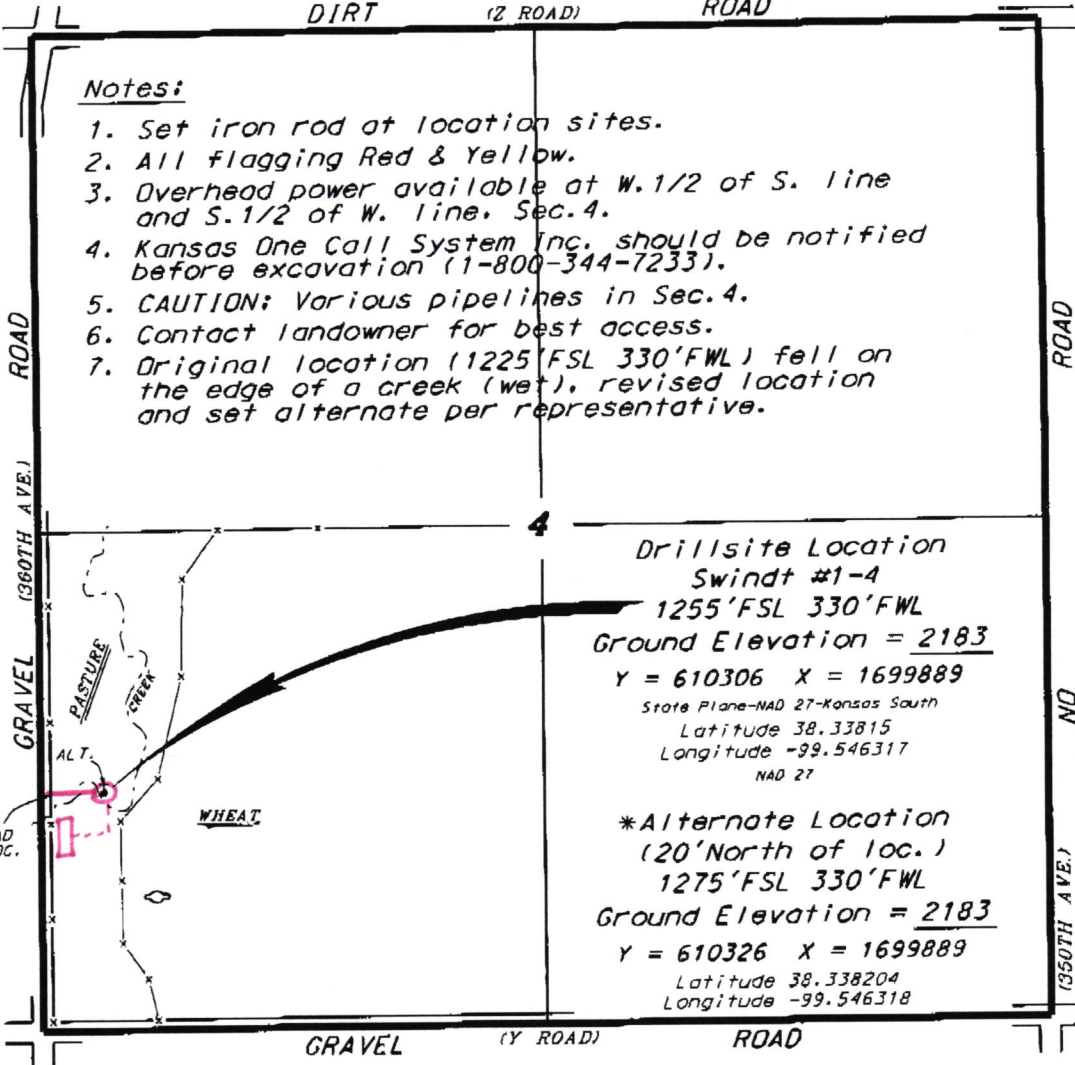 DIRT (Z ROAD) ROAD
Notes:
1. Set iron rod at location sites.
2. All flagging Red & Yellow.
3. Overhead power available at W.1/2 of S. line
and S.1/2 of W. line. Sec.4.
4. Kansas One Call System Inc. should be notified
before excavation (1-800-344-7233).
5. CAUTION: Various pipelines in Sec.4.
6. Contact landowner for best access.
7. Original location (1225'FSL 330'FWL) fell on
the edge of a creek (wet), revised location
and set alternate per representative.
GRAVEL (360TH AVE.) ROAD
4
PASTURE
CREEK
ALT.
WHEAT
Drillsite Location
Swindt #1-4
1255'FSL 330'FWL
Ground Elevation = 2183
Y = 610306 X = 1699889
State Plane-NAD 27-Kansas South
Latitude 38.33815
Longitude -99.546317
NAD 27
*Alternate Location
(20'North of loc.)
1275'FSL 330'FWL
Ground Elevation = 2183
Y = 610326 X = 1699889
Latitude 38.338204
Longitude -99.546318
(350TH AVE.) NO ROAD
GRAVEL (Y ROAD) ROAD